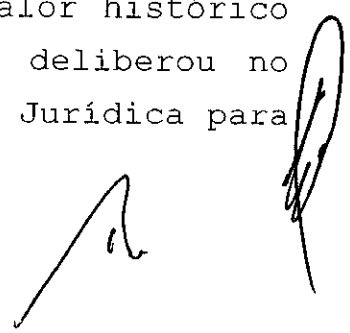 alor histórico
deliberou no
Jurídica para